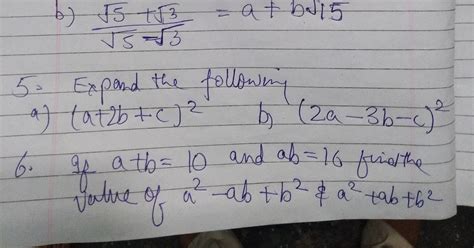 b) √5 + √3 / √5 - √3 = a + b√15
5. Expand the following
a) (a+2b+c)² b) (2a-3b-c)²
6. If a+b=10 and ab=16 find the
value of a²-ab+b² & a²+ab+b²